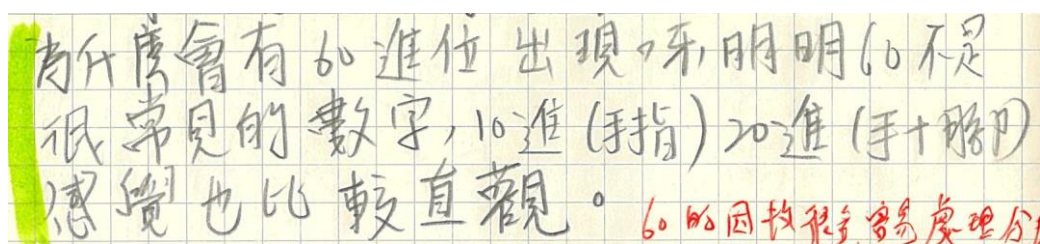 為什麼會有60進位出現呀,明明60不是
很常見的數字,10進(手指)20進(手+腳)
感覺也比較直觀。
60的因數很多容易處理分